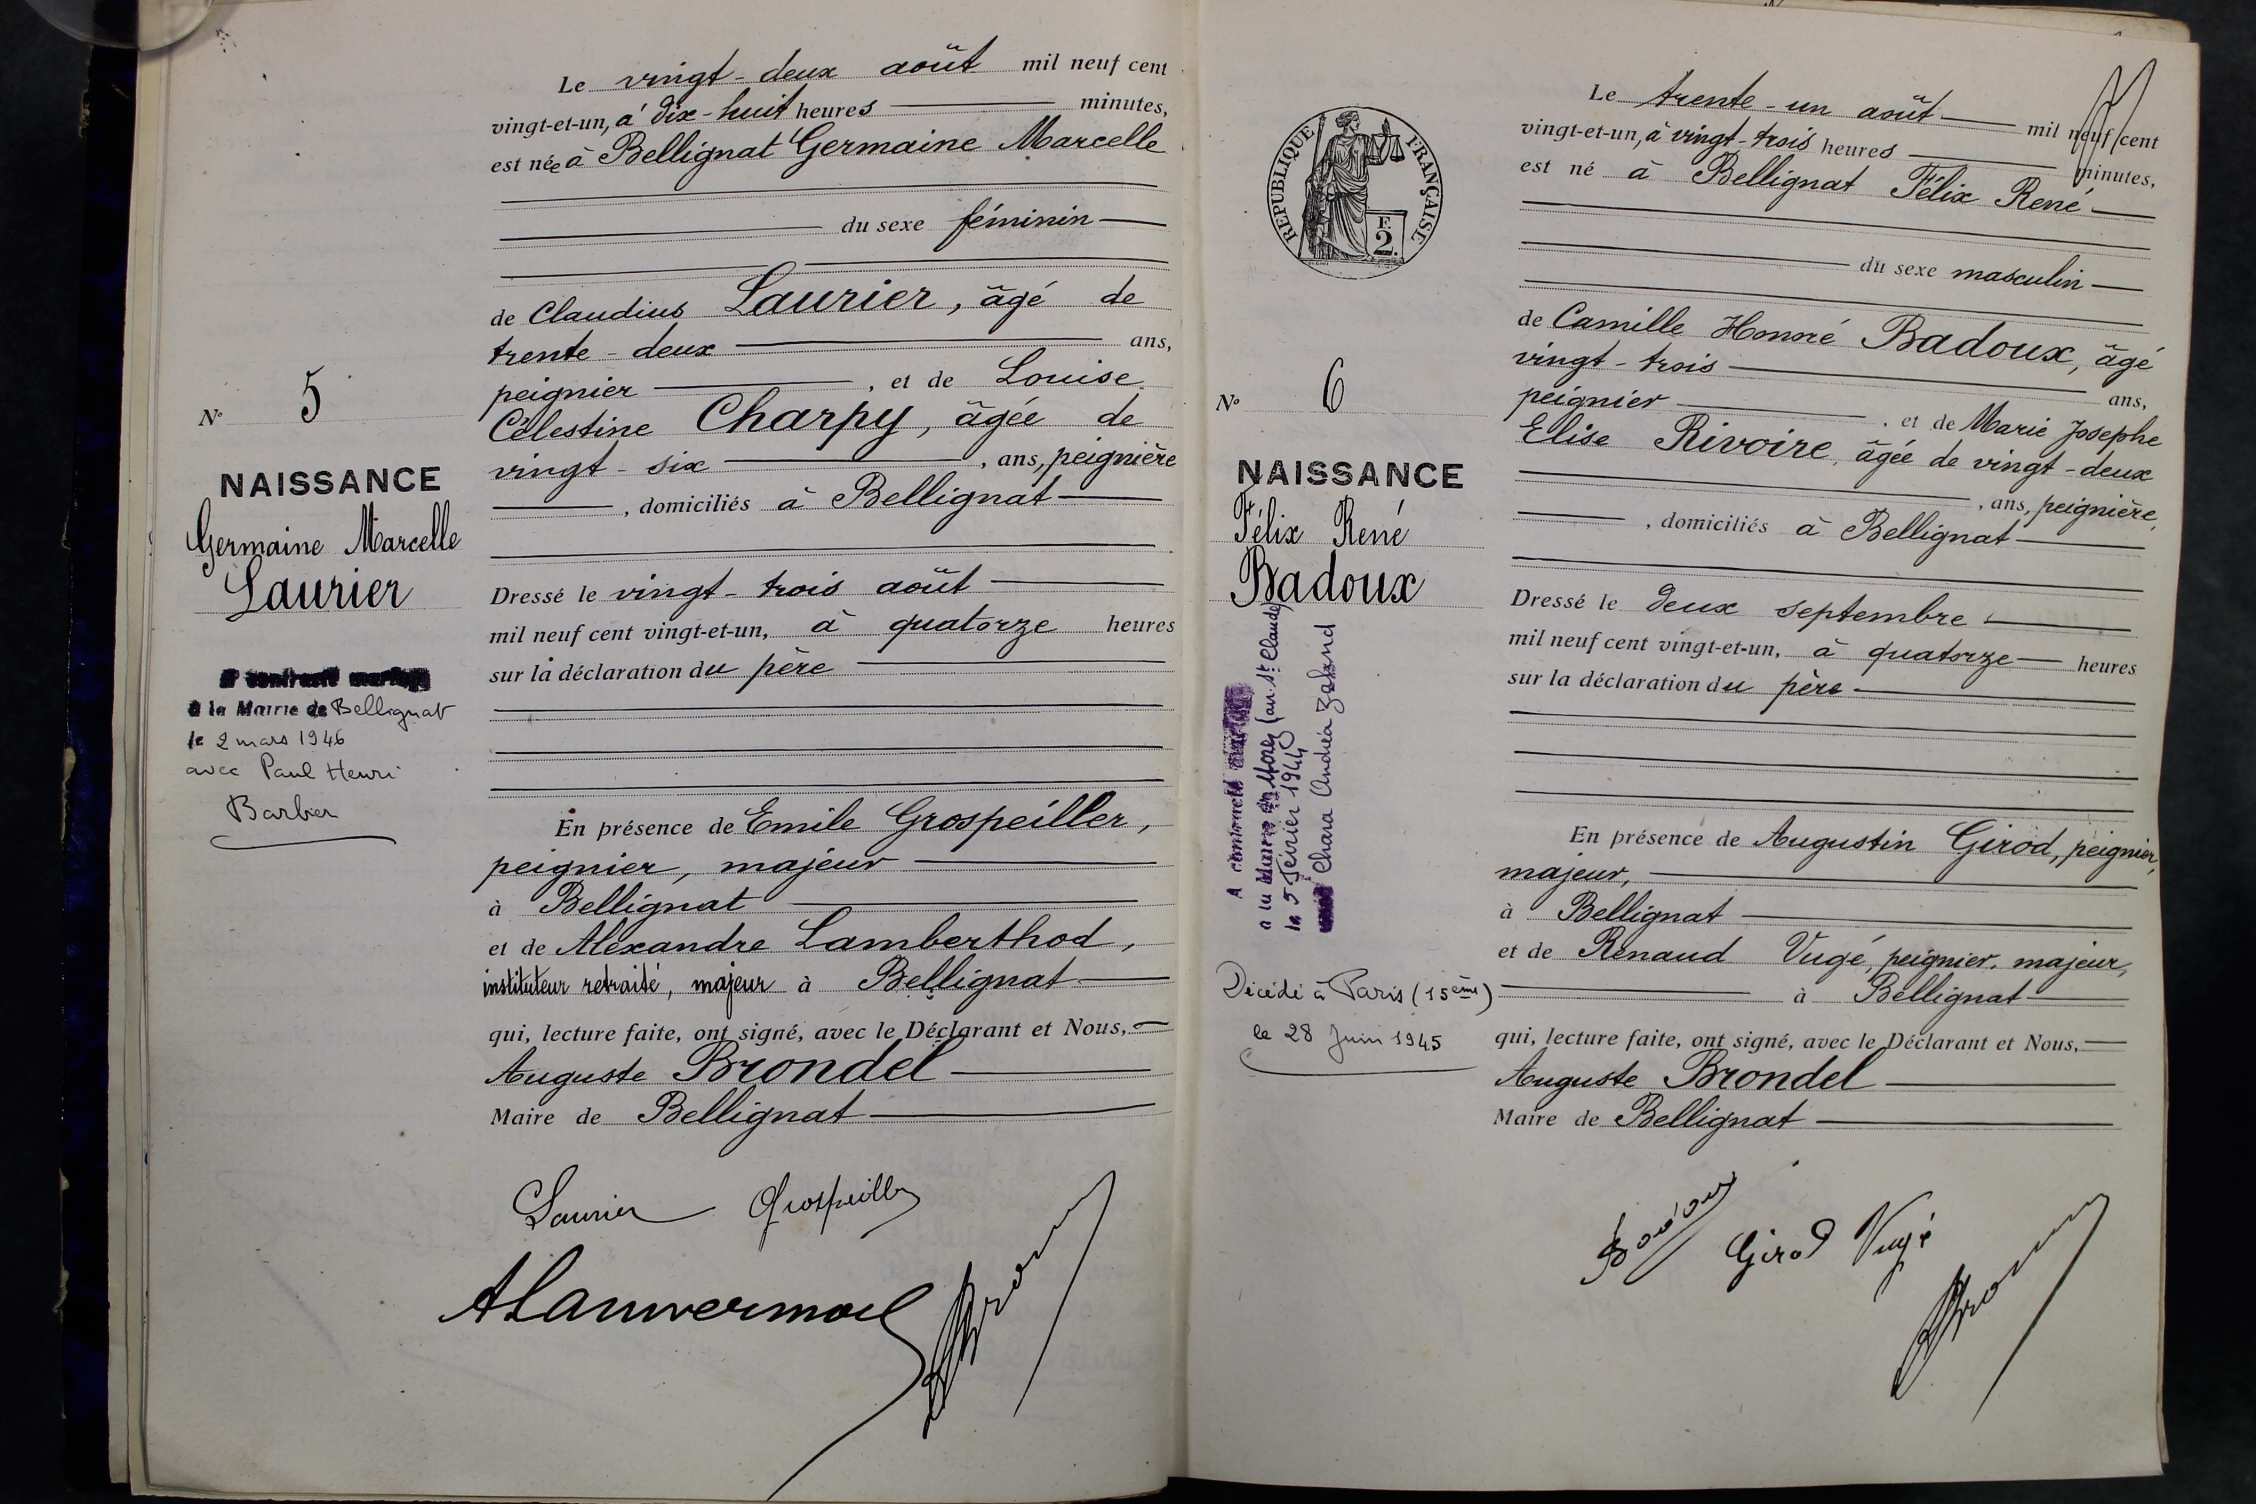 Le vingt-deux août mil neuf cent
vingt-et-un, à dix-huit heures minutes,
est née à Bellignat Germaine Marcelle
du sexe féminin
de Claudius Laurier, âgé de
trente-deux ans,
peignier, et de Louise
Célestine Charpy, âgée de
vingt-six, ans, peignière
, domiciliés à Bellignat
N° 5
NAISSANCE
Germaine Marcelle
Laurier
à la Mairie de Bellignat
le 2 mars 1946
avec Paul Henri
Barbier
Dressé le vingt-trois août
mil neuf cent vingt-et-un, à quatorze heures
sur la déclaration du père
En présence de Emile Grospeiller,
peignier, majeur
à Bellignat
et de Alexandre Lamberthod,
instituteur retraité, majeur à Bellignat
qui, lecture faite, ont signé, avec le Déclarant et Nous,
Auguste Brondel
Maire de Bellignat
Laurier Grospeiller
REPUBLIQUE FRANÇAISE
F.
2.
Le trente-un août mil neuf cent
vingt-et-un, à vingt-trois heures minutes,
est né à Bellignat Félix René
du sexe masculin
de Camille Honoré Badoux, âgé
vingt-trois ans,
peignier, et de Marie Josephe
Elise Rivoire, âgée de vingt-deux
, ans, peignière,
, domiciliés à Bellignat
N° 6
NAISSANCE
Félix René
Badoux
A contracté mariage
à la Mairie de Morez (an St Claude)
le 5 Février 1944
Chara Andréa
Décédé à Paris (15ème)
le 28 Juin 1945
Dressé le deux septembre
mil neuf cent vingt-et-un, à quatorze heures
sur la déclaration du père
En présence de Augustin Girod, peignier,
majeur,
à Bellignat
et de Renaud Vugé, peignier, majeur,
à Bellignat
qui, lecture faite, ont signé, avec le Déclarant et Nous,
Auguste Brondel
Maire de Bellignat
Badoux Girod Vugé